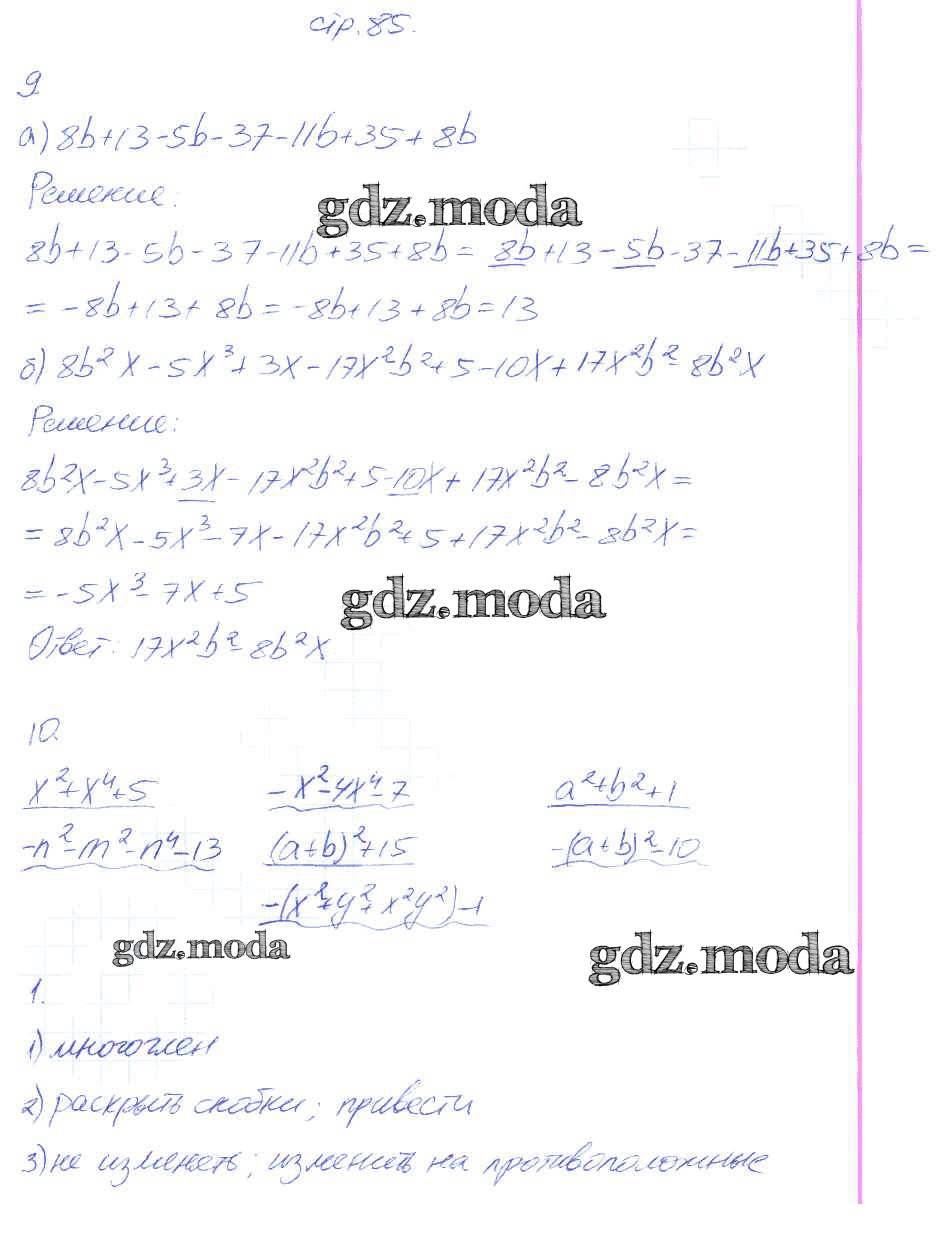 стр. 85.
9
а) 8b+13-5b-37-11b+35+8b
Решение:
gdz.moda
8b+13-5b-37-11b+35+8b = 8b+13-5b-37-11b+35+8b =
= -8b+13+8b = -8b+13+8b=13
б) 8b²x-5x³+3x-17x²b²+5-10x+17x²b²-8b²x
Решение:
8b²x-5x³+3x-17x²b²+5-10x+17x²b²-8b²x =
= 8b²x-5x³-7x-17x²b²+5+17x²b²-8b²x=
= -5x³-7x+5
gdz.moda
Ответ: 17x²b²-8b²x
10.
x²+x⁴+5 -x²-4x⁴-7 a²+b²+1
-n²-m²-n⁴-13 (a+b)²+15 -(a+b)²-10
-(x²+y²+x²y²)-1
gdz.moda gdz.moda
1.
1) многочлен
2) раскрыть скобки; привести
3) не изменять; изменить на противоположные